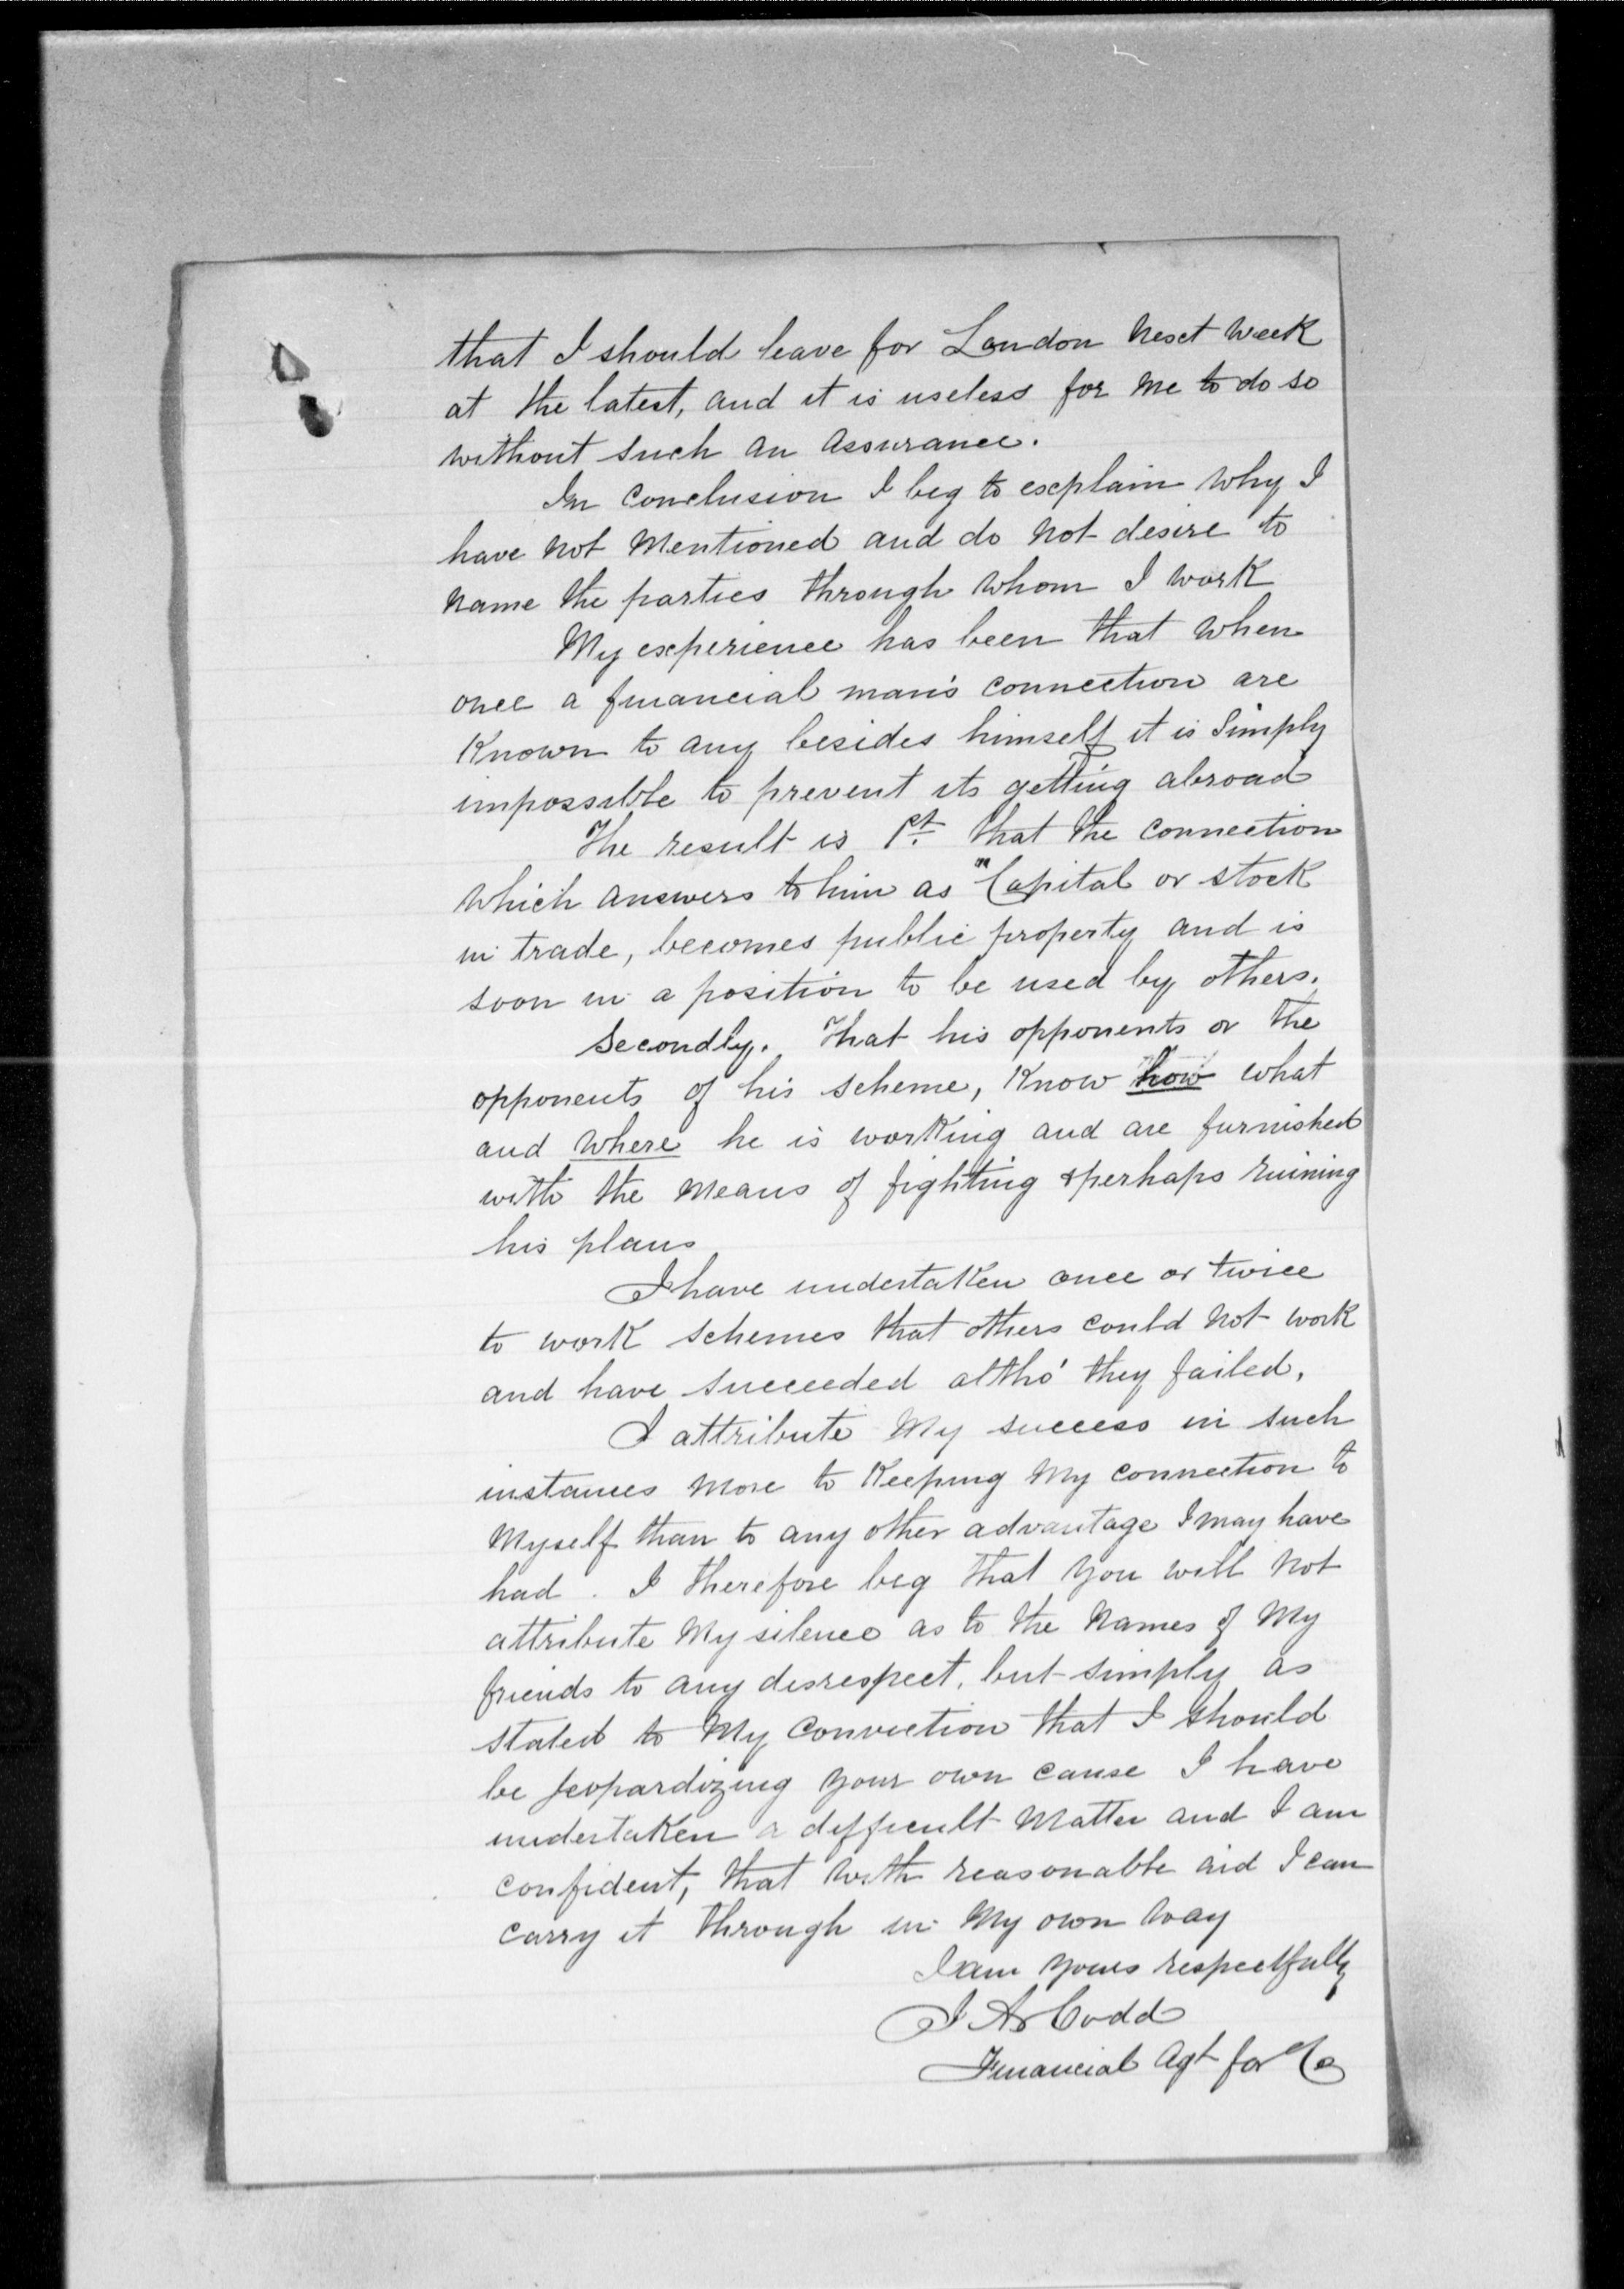 that I should leave for London next week
at the latest, and it is useless for me to do so
without such an assurance.
In conclusion I beg to explain why I
have not mentioned and do not desire to
name the parties through whom I work
My experience has been that when
once a financial man's connection are
known to any besides himself it is simply
impossible to prevent its getting abroad
The result is 1st. that the connection
which answers to him as "Capital or stock
in trade, becomes public property and is
soon in a position to be used by others.
Secondly. That his opponents or the
opponents of his scheme, know how what
and where he is working and are furnished
with the means of fighting & perhaps ruining
his plans
I have undertaken once or twice
to work schemes that others could not work
and have succeeded altho' they failed.
I attribute my success in such
instances more to keeping my connection to
myself than to any other advantage I may have
had. I therefore beg that you will not
attribute my silence as to the names of my
friends to any disrespect, but simply as
stated to my conviction that I should
be jeopardizing your own cause I have
undertaken a difficult matter and I am
confident, that with reasonable aid I can
carry it through in my own way
I am yours respectfully
J A Codd
Financial Agt for Co